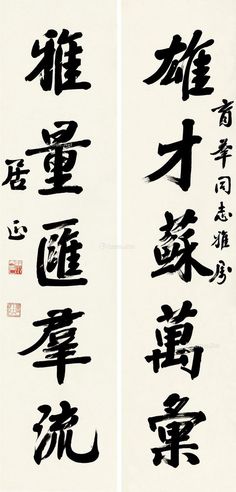 育華同志雅屬
雄才蘇萬彙
雅量匯羣流
居正